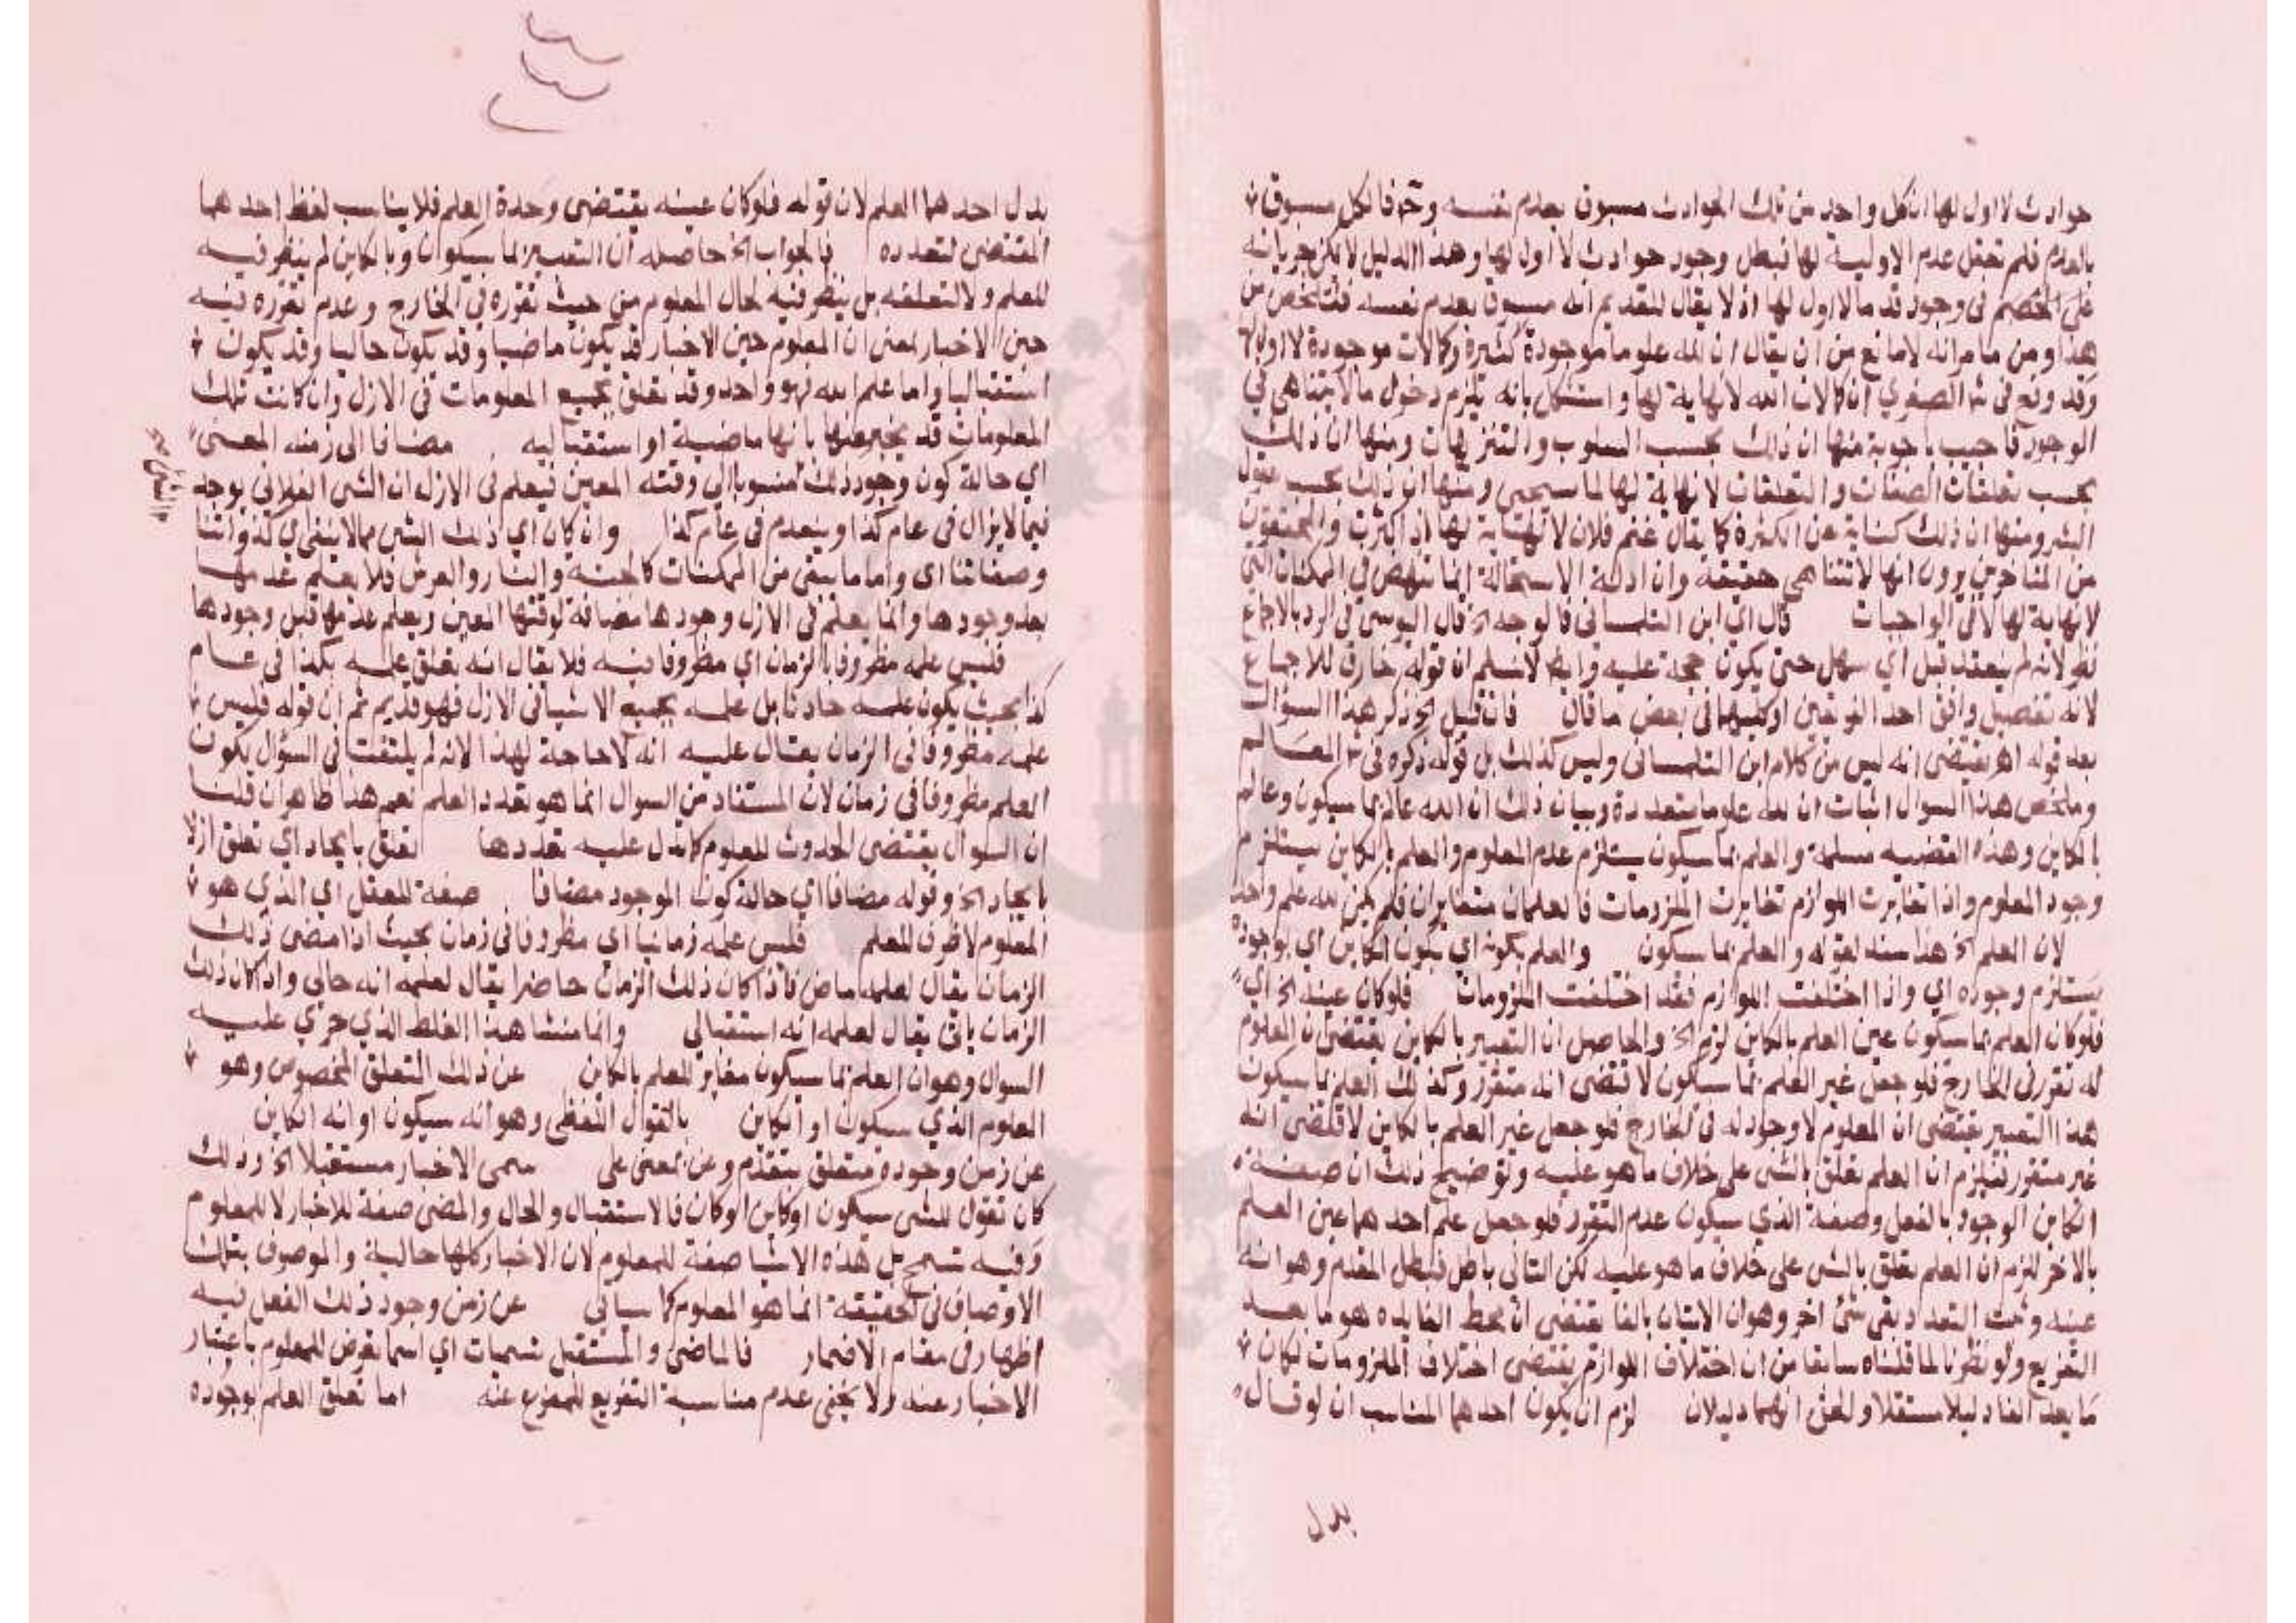 حوادث لا اول لها ان كل واحد من تلك الحوادث مسبوق بعدم نفسه وح فالكل مسبوق
بالعدم فلم تعقل عدم الاولية لها فبطل وجود حوادث لا اول لها وهذا الدليل لا يمكن جريانه
على الخصم فى وجود قد ما لا اول لها اذ لا يقال للقديم انه مسبوق بعدم نفسه فتلخص من
هذا ومن ما مر انه لا مانع من ان يقال ان لله علوما موجودة كثيرة وكمالات موجودة لا اول لها
وقد وقع فى شرح الصغري ان كمالات الله لا نهاية لها واستشكل بانه يلزم دخول ما لا يتناهى في
الوجود فاجيب باجوبة منها ان ذلك بحسب السلوب والتنزيهات ومنها ان ذلك
بحسب تعلقات الصفات والتعلقات لا نهاية لها لما سيجيى ومنها ان ذلك بحسب عقول
البشر ومنها ان ذلك كناية عن الكثرة كما يقال غنم فلان لا نهاية لها اذا كثرت والمحققون
من المتاخرين يرون انها لا تتناهى حقيقة وان ادلة الاستحالة انما تنهض في الممكنات التي
لا نهاية لها لا في الواجبات قال اي ابن التلمسانى فالوجه الخ قال اليوسي فى الرد بالاجماع
نظر لانه لم ينعقد قبل أي سهل حتى يكون حجة عليه وايضا لا نسلم ان قوله خارق للاجماع
لانه تفصيل وافق احد الفريقين او كليهما فى بعض ما قال فان قيل الخ ذكر هذا السؤال
بعد قوله اهـ يقتضى انه ليس من كلام ابن التلمسانى وليس كذلك بل قوله ذكره فى شرح المعالم
وملخص هذا السؤال اثبات ان لله علوما متعددة وبيان ذلك ان الله عالم بما سيكون وعالم
بالكاين وهذه القضيه مسلمة والعلم بما سيكون يستلزم عدم المعلوم والعلم بالكاين يستلزم
وجود المعلوم واذا تغايرت اللوازم تغايرت الملزومات فالعلمان متغايران فلم يكن لله علم واحد
لان العلم الخ هذا سند لقوله والعلم بما سيكون والعلم بكونه اي بكون الكاين اي بوجوده
يستلزم وجوده اي واذا اختلفت اللوازم فقد اختلفت الملزومات فلو كان عينه الخ اي
فلو كان العلم بما سيكون عين العلم بالكاين لزم الخ والحاصل ان التعبير بالكاين يقتضى ان المعلوم
له تقرر فى الخارج فلو جعل غير العلم بما سيكون لاقتضى انه متقرر وكذلك العلم بما سيكون
هذا التعبير يقتضى ان المعلوم لا وجود له فى الخارج فلو جعل غير العلم بالكاين لاقتضى انه
غير متقرر فيلزم ان العلم تعلق بالشى على خلاف ما هو عليه وتوضيح ذلك ان صفة
الكاين الوجود بالفعل وصفة الذي سيكون عدم التقرر فلو جعل علم احدهما عين العلم
بالاخر للزم ان العلم تعلق بالشى على خلاف ما هو عليه لكن التالى باطل فبطل المقدم وهو انه
عينه وثبت التعدد بقى شئ اخر وهو ان الاتيان بالفا يقتضى ان محط الفايده هو ما بعد
التفريع ولو نظرنا لما قلناه سابقا من ان اختلاف اللوازم يقتضى اختلاف الملزومات لكان
ما بعد الفا دليلا مستقلا والحق انهما دليلان لزم ان يكون احدهما المناسب ان لو قال
بدل
بدل احدهما العلم لان قوله فلو كان عينه يقتضى وحدة العلم فلا يناسب لفظ احدهما
المقتضى لتعدده فالجواب الخ حاصله ان التعبير بما سيكون وبالكاين لم ينظر فيه
للعلم ولا لتعلقه بل ينظر فيه لحال المعلوم من حيث تقرره في الخارج وعدم تقرره فيه
حين الاخبار بمعنى ان المعلوم حين الاخبار قد يكون ماضيا وقد يكون حاليا وقد يكون
استقباليا واما علم الله فهو واحد وقد تعلق بجميع المعلومات فى الازل وان كانت تلك
المعلومات قد يخبر عنها بانها ماضية او استقباليه مضافا الى زمنه المعين
اي حالة كون وجود ذلك منسوبا الى وقته المعين فيعلم فى الازل ان الشى الفلانى يوجد
فيما لا يزال فى عام كذا وينعدم فى عام كذا وان كان اي ذلك الشى مما لا يبقى اي كذواتنا
وصفاتنا اى واما ما يبقى من الممكنات كالجنه والنار والعرش فلا يعلم عدمها
بعد وجودها وانما يعلم فى الازل وجودها مضافة لوقتها المعين ويعلم عدمها قبل وجودها
فليس علمه مظروفا بالزمان اي مظروفا فيه فلا يقال انه تعلق علمه بكذا فى عام
كذا بحيث يكون علمه حادثا بل علمه بجميع الاشيا فى الازل فهو قديم ثم ان قوله فليس
علمه مظروفا فى الزمان يقال عليه انه لا حاجة لهذا لانه لم يلتفت فى السؤل يكون
العلم مظروفا فى زمان لان المستفاد من السوال انما هو تعدد العلم نعم هذا ظاهر ان قلنا
ان السوال يقتضى الحدوث للمعلوم كما يدل عليه تعددها تعلق بايجاد اي تعلق ازلا
بايجاد الخ وقوله مضافا اي حالة كون الوجود مضافا صفة للعقل اي الذي هو
المعلوم لا ظرف للعلم فليس علمه زمانيا اي مظروفا فى زمان بحيث اذا مضى ذلك
الزمان يقال لعلمه ماض فاذا كان ذلك الزمان حاضرا يقال لعلمه انه حالى واذ كان ذلك
الزمان باقى يقال لعلمه انه استقبالى وانما منشا هذا الغلط الذي جرى عليه
السوال وهو ان العلم بما سيكون مغاير للعلم بالكاين عن ذلك التعلق المخصوص وهو
المعلوم الذي سيكون او الكاين بالقول اللفظى وهو انه سيكون او انه الكاين
عن زمن وجوده متعلق بتقدم وعن بمعنى على سمى الاخبار مستقبلا الخ وذلك
كان تقول للشى سيكون او كاين او كان فالاستقبال والحال والمضى صفة للاخبار لا للمعلوم
وفيه تسمح بل هذه الاشيا صفة للمعلوم لان الاخبار كلها حالية والموصوف بتلك
الاوصاف فى الحقيقة انما هو المعلوم كما سياتى عن زمن وجود ذلك الفعل فيه
اظهار فى مقام الاضمار فالماضى والمستقبل تسميات اي اسما تعرض للمعلوم باعتبار
الاخبار عنه ولا يخفى عدم مناسبة التفريع للمفرع عنه اما تعلق العلم بوجوده